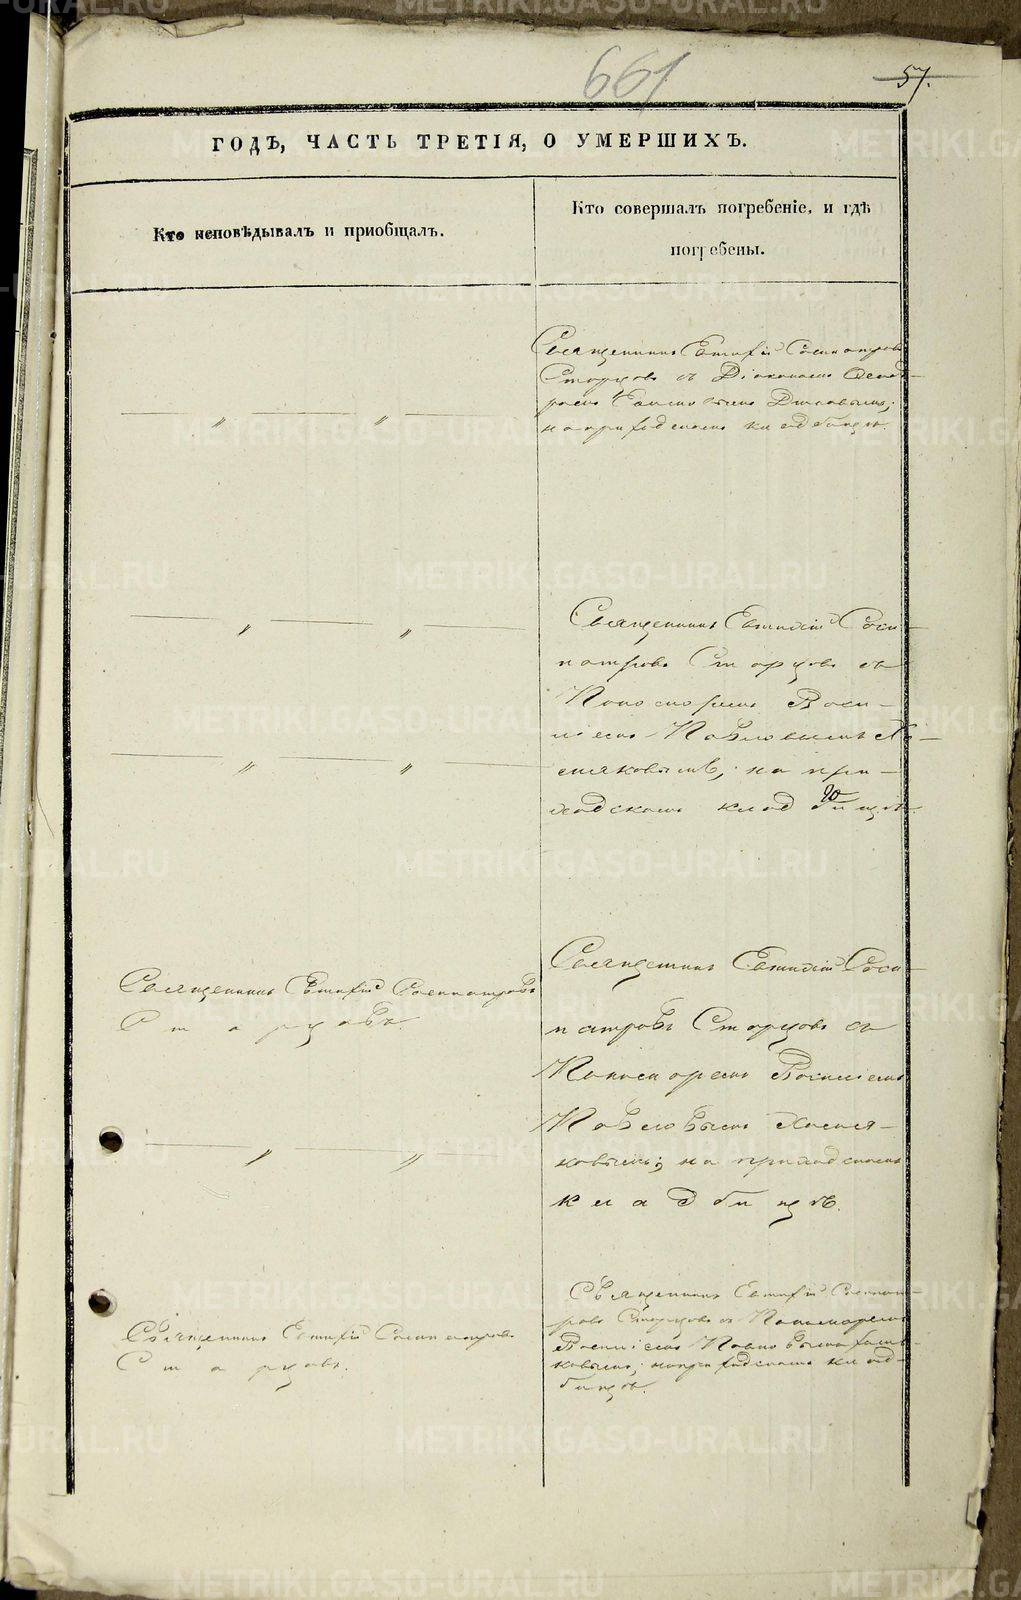 661
57.
ГОДЪ, ЧАСТЬ ТРЕТІЯ, О УМЕРШИХЪ.
Кто исповѣдывалъ и приобщалъ.
Кто совершалъ погребеніе, и гдѣ
погребены.
Священникъ Евтихій Сосипатровъ
Старцовъ съ Діакономъ
на приходскомъ кладбищѣ.
Священникъ Евтихій Соси-
патровъ Старцовъ съ
Пономаремъ Васи-
ліемъ Павловымъ Хо-
мяковымъ; на при-
ходскомъ кладбищѣ.
Священникъ Евтихій Сосипатровъ
Старцовъ.
Священникъ Евтихій Соси-
патровъ Старцовъ съ
Пономаремъ Василіемъ
Павловымъ Хомя-
ковымъ; на приходскомъ
кладбищѣ.
Священникъ Евтихій Сосипатровъ
Старцовъ.
Священникъ Евтихій Сосипат-
ровъ Старцовъ съ Пономаремъ
Василіемъ Павловымъ Хомя-
ковымъ; на приходскомъ клад-
бищѣ.
METRIKI.GASO-URAL.RU